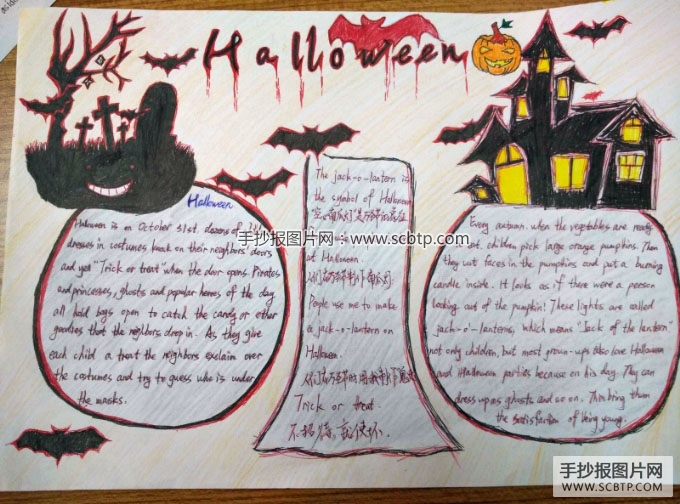 Halloween
Halloween
Halloween is on October 31st. dozens of
dresses in costumes knock on their neighbors' doors
and yell "Trick or treat" when the door opens. Pirates
and princesses, ghosts and popular heroes of the day
all hold bags open to catch the candy or other
goodies that the neighbors drop in. As they give
each child a treat the neighbors exclaim over
the costumes and try to guess who is under
the masks.
The jack-o-lantern is
the symbol of Halloween
at Halloween.
People use me to make
a jack-o-lantern on
Halloween.
Trick or treat
不招待,就使坏.
Every autumn. when the vegetables are ready
eat. children pick large orange pumpkins. Then
they cut faces in the pumpkins and put a burning
candle inside. It looks as if there were a person
looking out of the pumpkin! These lights are called
jack-o'-lanterns, which means "Jack of the lantern"
not only children, but most groun-ups also love Halloween
and Halloween parties because on his day. They can
dress up as ghosts and so on. This bring them
the satisfaction of being young.
手抄报图片网:www.scbtp.com
手抄报图片网
WWW.SCBTP.COM